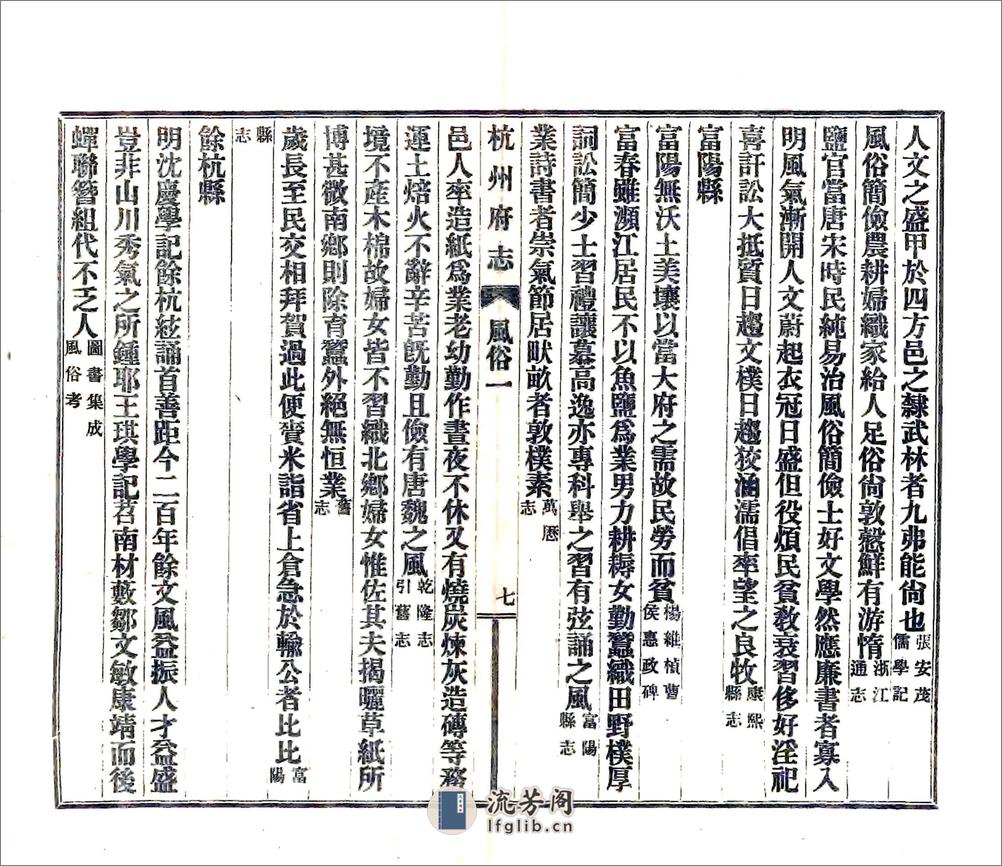 人文之盛甲於四方邑之隸武林者九弗能尙也張安茂儒學記
風俗簡儉農耕婦織家給人足俗尙敦慤鮮有游惰浙江通志
鹽官當唐宋時民純易治風俗簡儉士好文學然應廉書者寡入
明風氣漸開人文蔚起衣冠日盛但役煩民貧敎衰習侈好淫祀
喜訐訟大抵質日趨文樸日趨狡涵濡倡率望之良牧康熙縣志
富陽縣
富陽無沃土美壤以當大府之需故民勞而貧楊維楨曹侯惠政碑
富春雖瀕江居民不以魚鹽爲業男力耕耨女勤蠶織田野樸厚
詞訟簡少士習禮讓慕高逸亦專科舉之習有弦誦之風富陽縣志
業詩書者崇氣節居畎畝者敦樸素萬厯志
杭州府志 風俗一 七
邑人率造紙爲業老幼勤作晝夜不休又有燒炭煉灰造磚等務
運土焙火不辭辛苦旣勤且儉有唐魏之風乾隆志引舊志
境不產木棉故婦女皆不習織北鄉婦女惟佐其夫揭曬草紙所
博甚微南鄉則除育蠶外絕無恒業舊志
歲長至民交相拜賀過此便賫米詣省上倉急於輸公者比比富陽
縣志
餘杭縣
明沈慶學記餘杭絃誦首善距今二百年餘文風益振人才益盛
豈非山川秀氣之所鍾耶王琪學記苕南材藪鄒文敏康靖而後
蟬聯簪組代不乏人圖書集成風俗考
流芳阁
lfglib.cn